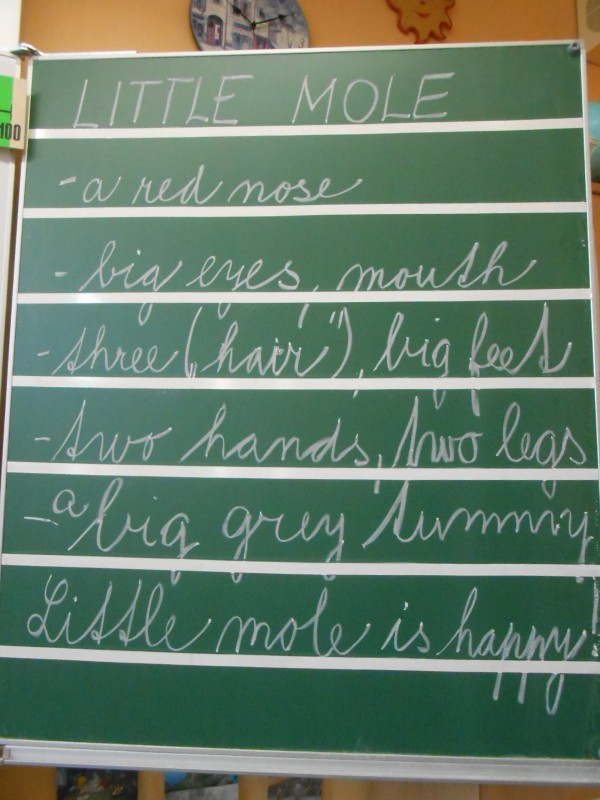 LITTLE MOLE
- a red nose
- big eyes, mouth
- three („hair"), big feet
- two hands, two legs
- a big grey tummy
Little mole is happy.
100